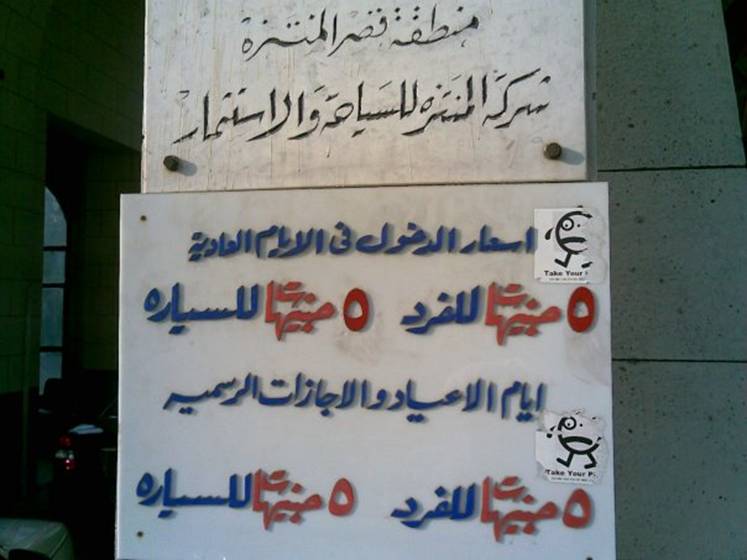 منطقة قصر المنتزة
شركة المنتزه للسياحة والاستثمار
اسعار الدخول فى الايام العادية
Take Your
٥ جنيهات للفرد ٥ جنيهات للسياره
ايام الاعياد والاجازات الرسميه
Take Your P
٥ جنيهات للفرد ٥ جنيهات للسياره